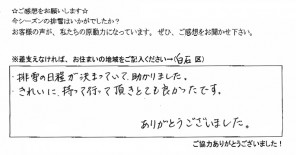 ☆ご感想をお願いします☆
今シーズンの排雪はいかがでしたか？
お客様の声が、私たちの原動力になっています。ぜひ、ご感想をお聞かせ下さい。
※差支えなければ、お住まいの地域をご記入ください→（白石 区）
・排雪の日程が決まっていて、助かりました。
・きれいに、持って行って頂きとても良かったです。
ありがとうございました。
ご協力ありがとうございました！